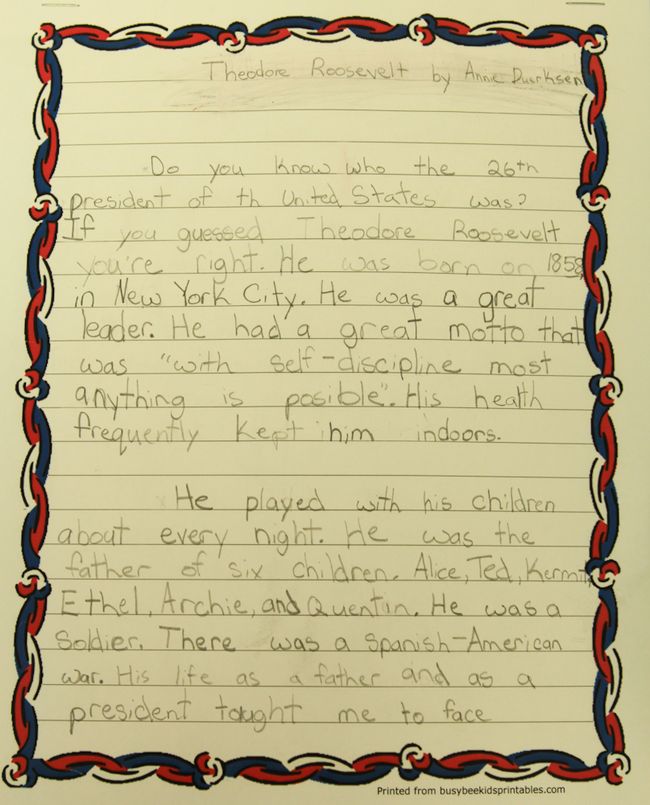 Theodore Roosevelt by Anne Duerksen
Do you know who the 26th
president of th United States was?
If you guessed Theodore Roosevelt
you're right. He was born on 1858
in New York City. He was a great
leader. He had a great motto that
was "with self-discipline most
anything is posible". His health
frequently kept him indoors.
He played with his children
about every night. He was the
father of six children. Alice, Ted, Kermit,
Ethel, Archie, and Quentin. He was a
soldier. There was a Spanish-American
war. His life as a father and as a
president tought me to face
Printed from busybeekidsprintables.com